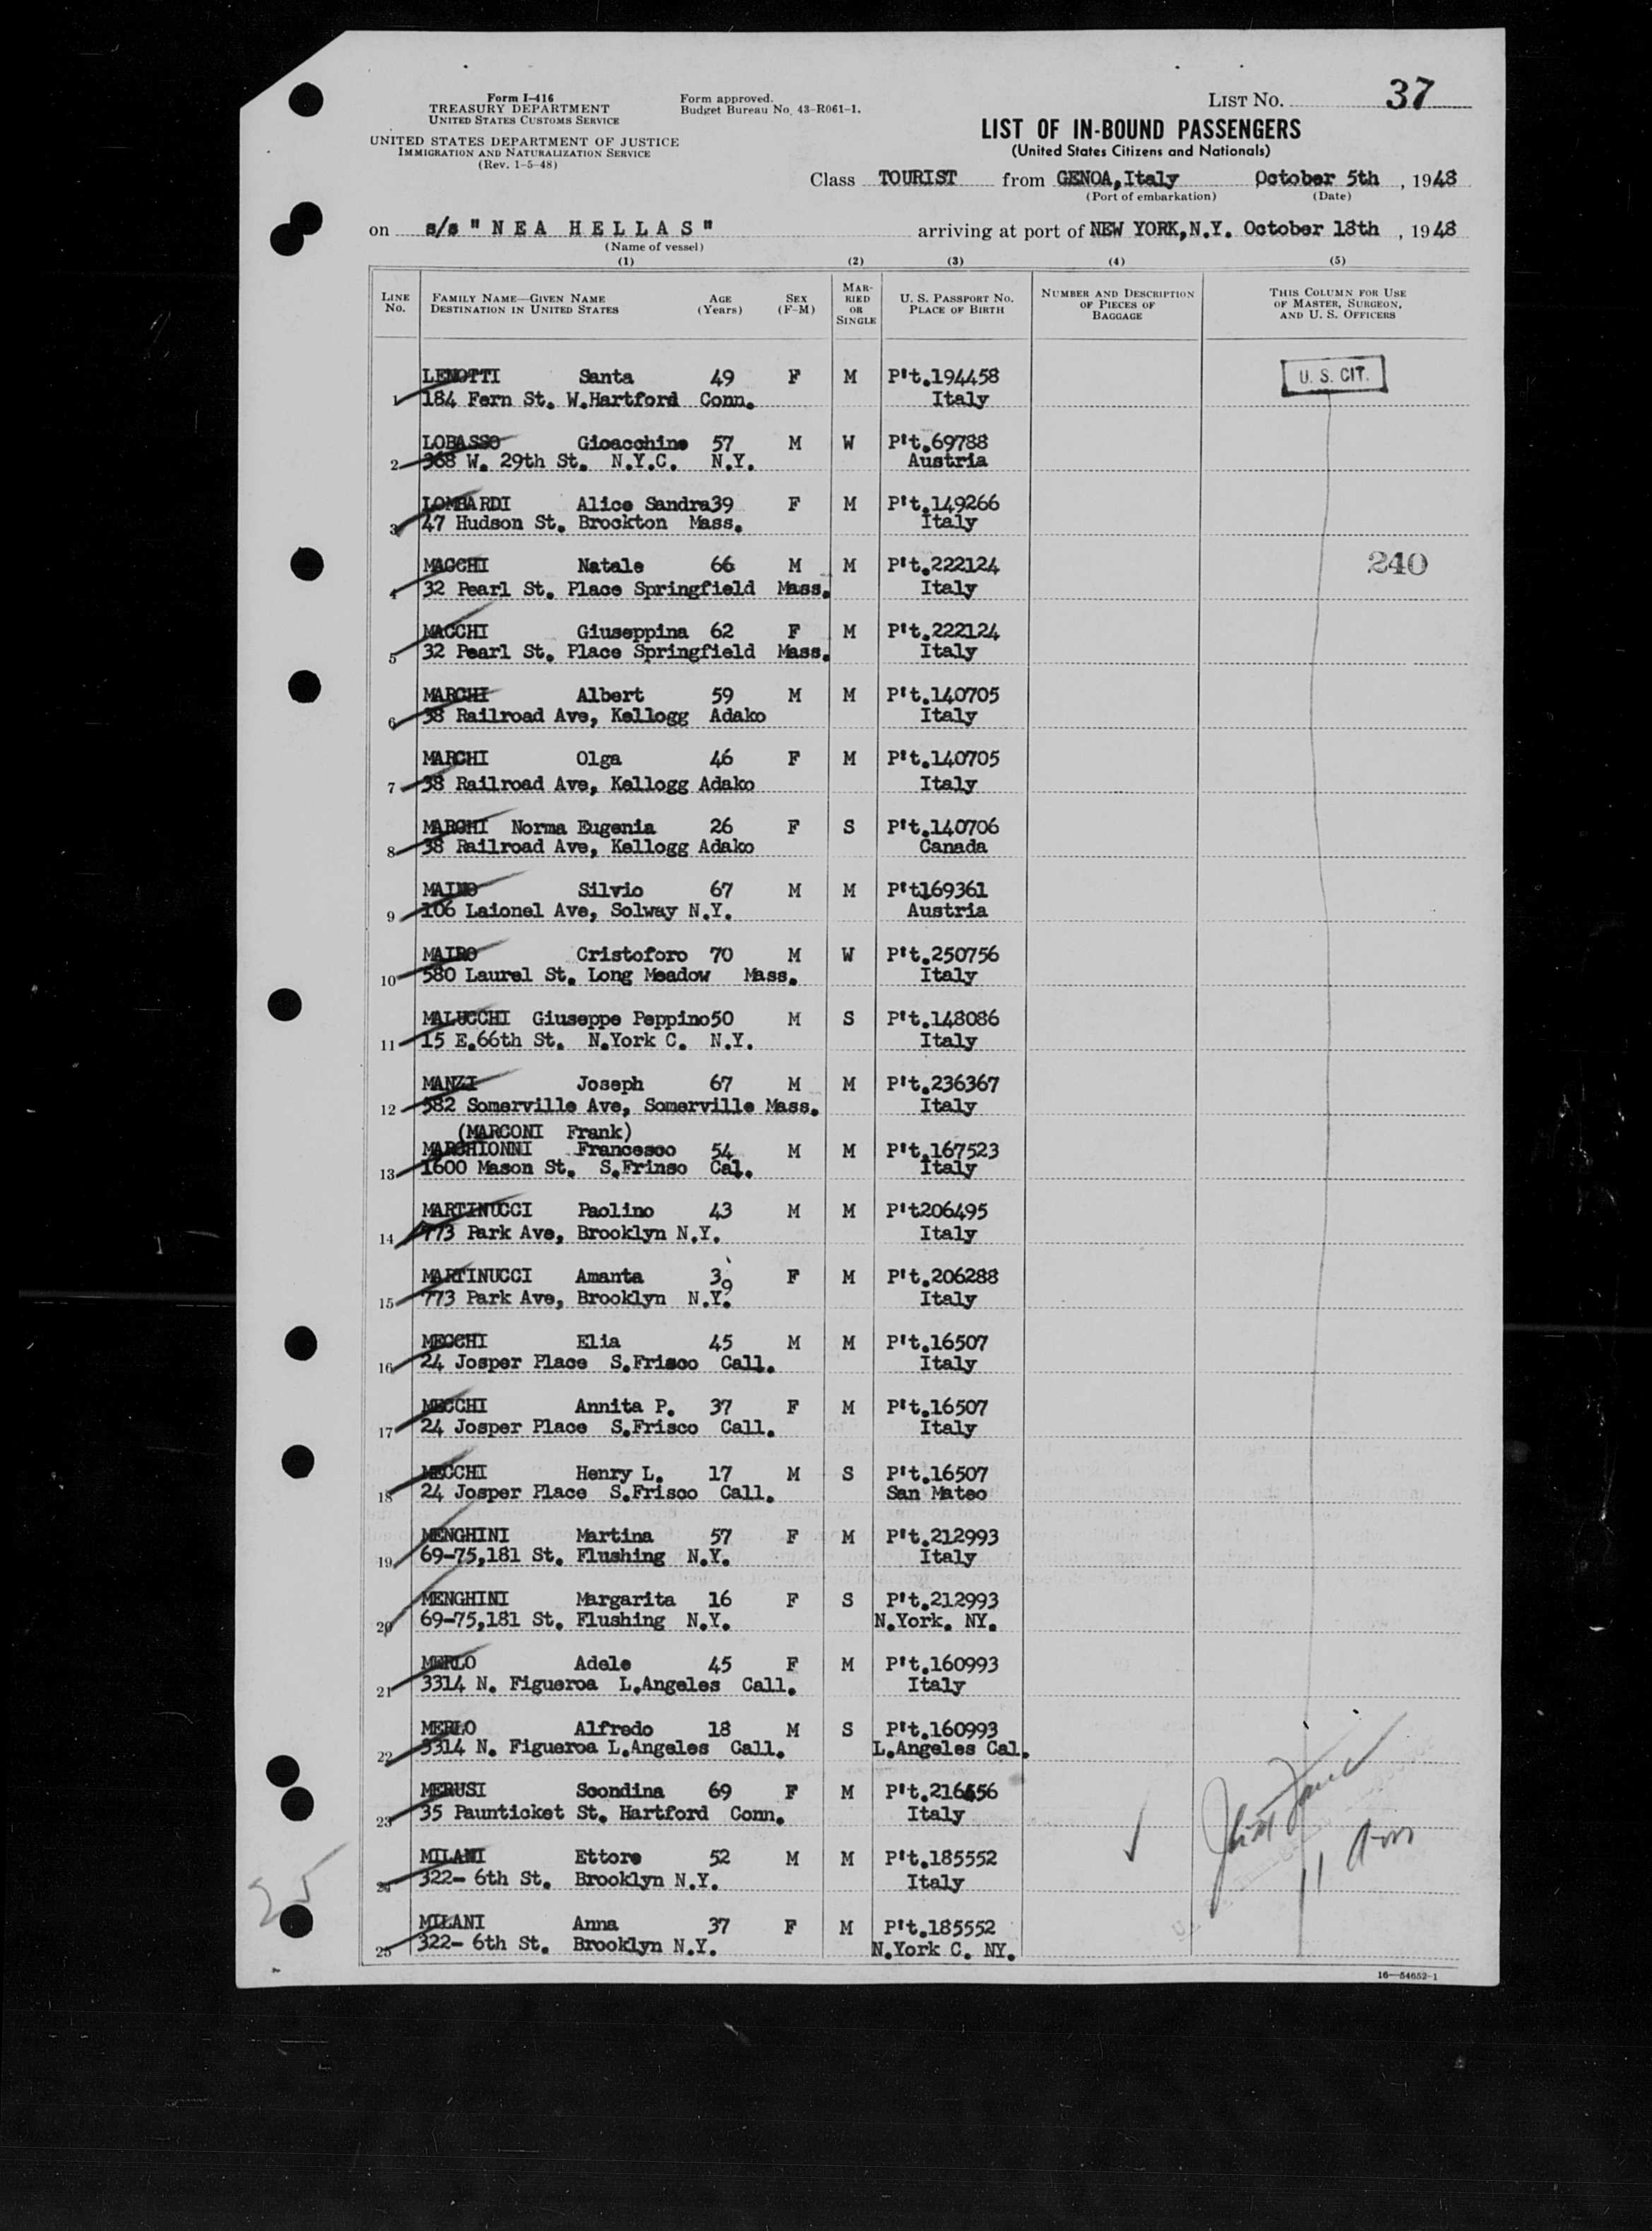 Form I-416
TREASURY DEPARTMENT
UNITED STATES CUSTOMS SERVICE
UNITED STATES DEPARTMENT OF JUSTICE
IMMIGRATION AND NATURALIZATION SERVICE
(Rev. 1-5-48)
Form approved.
Budget Bureau No. 43-R061-1.
LIST NO. 37
LIST OF IN-BOUND PASSENGERS
(United States Citizens and Nationals)
Class TOURIST from GENOA,Italy October 5th , 1948
(Port of embarkation) (Date)
on s/s " N E A H E L L A S " arriving at port of NEW YORK,N.Y. October 18th , 1948
(Name of vessel)
(1) (2) (3) (4) (5)
LINE No. FAMILY NAME—GIVEN NAME DESTINATION IN UNITED STATES AGE (Years) SEX (F-M) MARRIED OR SINGLE U. S. PASSPORT NO. PLACE OF BIRTH NUMBER AND DESCRIPTION OF PIECES OF BAGGAGE THIS COLUMN FOR USE OF MASTER, SURGEON, AND U. S. OFFICERS
LENOTTI Santa 49 F M P't.194458 U. S. CIT.
1 184 Fern St. W.Hartford Conn. Italy
LOBASSO Gioacchino 57 M W P't.69788
2 368 W. 29th St. N.Y.C. N.Y. Austria
LOMBARDI Alice Sandra39 F M P't.149266
3 47 Hudson St. Brockton Mass. Italy
MACCHI Natale 66 M M P't.222124 240
4 32 Pearl St. Place Springfield Mass. Italy
MACCHI Giuseppina 62 F M P't.222124
5 32 Pearl St. Place Springfield Mass. Italy
MARCHI Albert 59 M M P't.140705
6 38 Railroad Ave, Kellogg Adako Italy
MARCHI Olga 46 F M P't.140705
7 38 Railroad Ave, Kellogg Adako Italy
MARCHI Norma Eugenia 26 F S P't.140706
8 38 Railroad Ave, Kellogg Adako Canada
MAINO Silvio 67 M M P't169361
9 106 Laionel Ave, Solway N.Y. Austria
MAIRO Cristoforo 70 M W P't.250756
10 580 Laurel St. Long Meadow Mass. Italy
MALUCCHI Giuseppe Peppino50 M S P't.148086
11 15 E.66th St. N.York C. N.Y. Italy
MANZI Joseph 67 M M P't.236367
12 582 Somerville Ave, Somerville Mass. Italy
(MARCONI Frank)
MARCHIONNI Francesco 54 M M P't.167523
13 1600 Mason St. S.Frinso Cal. Italy
MARTINUCCI Paolino 43 M M P't206495
14 773 Park Ave, Brooklyn N.Y. Italy
MARTINUCCI Amanta 39 F M P't.206288
15 773 Park Ave, Brooklyn N.Y. Italy
MECCHI Elia 45 M M P't.16507
16 24 Josper Place S.Frisco Call. Italy
MECCHI Annita P. 37 F M P't.16507
17 24 Josper Place S.Frisco Call. Italy
MECCHI Henry L. 17 M S P't.16507
18 24 Josper Place S.Frisco Call. San Mateo
MENGHINI Martina 57 F M P't.212993
19 69-75,181 St. Flushing N.Y. Italy
MENGHINI Margarita 16 F S P't.212993
20 69-75,181 St. Flushing N.Y. N.York. NY.
MERLO Adele 45 F M P't.160993
21 3314 N. Figueroa L.Angeles Call. Italy
MERLO Alfredo 18 M S P't.160993
22 3314 N. Figueroa L.Angeles Call. L.Angeles Cal.
MERUSI Scondina 69 F M P't.216656
23 35 Paunticket St. Hartford Conn. Italy
MILANI Ettore 52 M M P't.185552
24 322- 6th St. Brooklyn N.Y. Italy
25
MILANI Anna 37 F M P't.185552
25 322- 6th St. Brooklyn N.Y. N.York C. NY.
16—54652-1